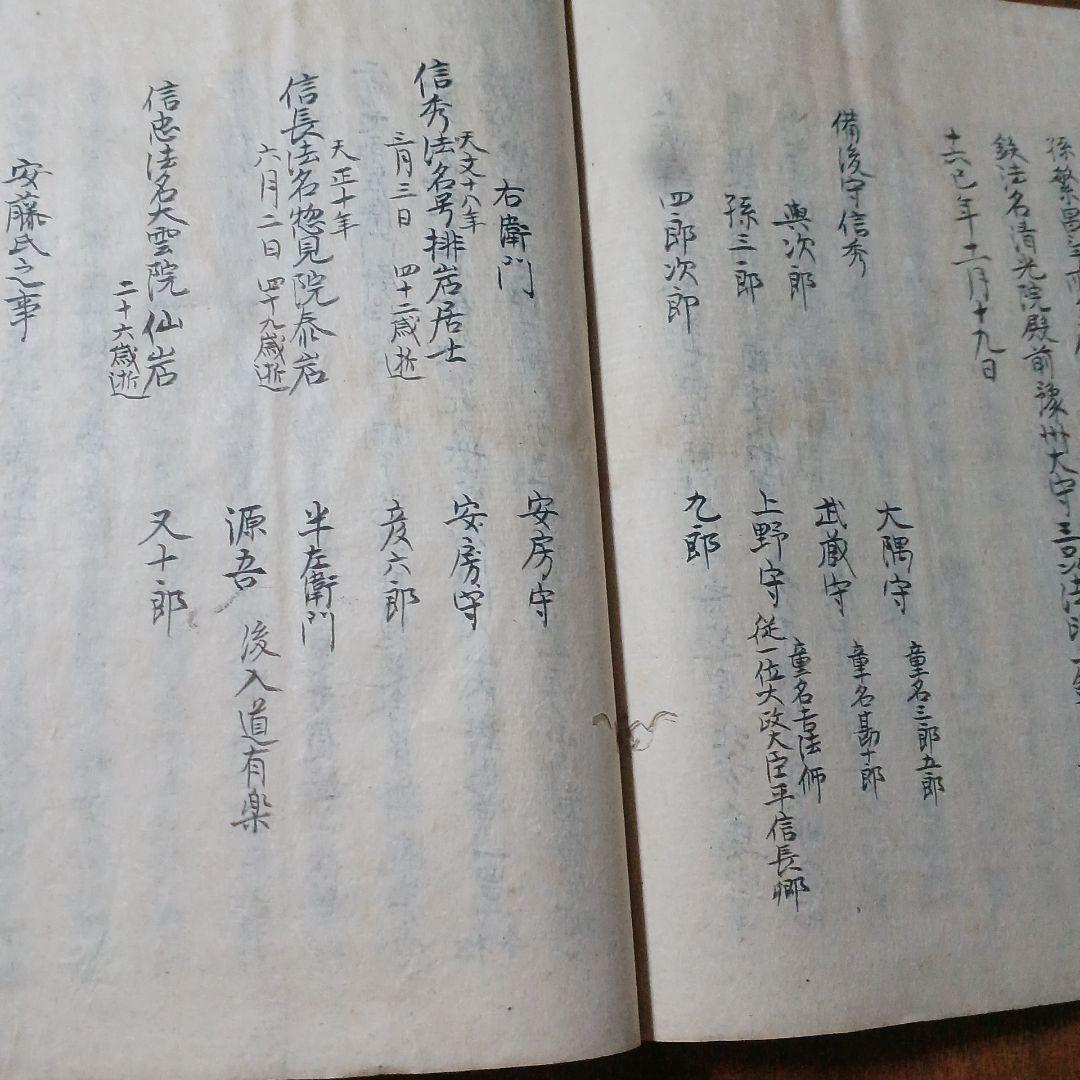 孫繁昌
鉄法名清光院殿前豫州大守
十六巳年十二月十九日
備後守信秀
與次郎
孫三郎
四郎次郎
大隅守 童名三郎五郎
武蔵守 童名勘十郎
上野守 童名吉法師
従一位大政大臣平信長郷
九郎
右衛門
信秀法名号排岩居士
天文十八年
三月三日 四十二歳逝
信長法名惣見院泰岩
天正十年
六月二日 四十九歳逝
信忠法名大雲院仙岩
二十六歳逝
安房守
安房守
彦六郎
半左衛門
源吾 後入道有楽
又十郎
安藤氏之事